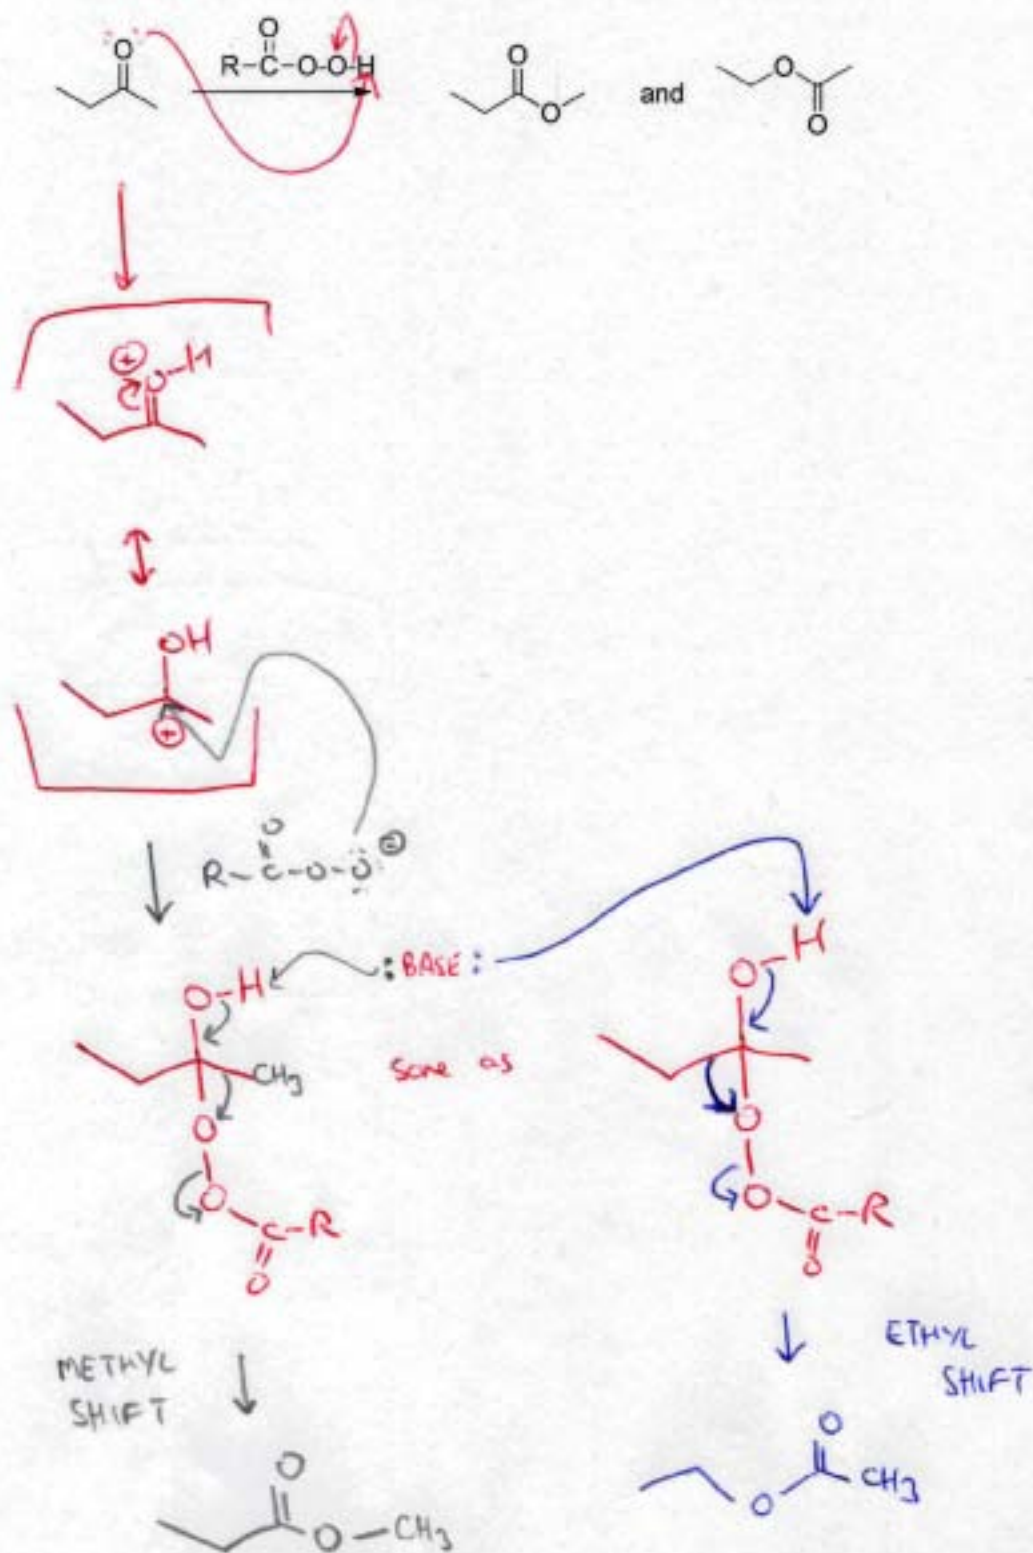 O
R-C-O-O-H
O
O
O
and
O
O
+
O-H
OH
+
O
R-C-O-O
-
H
O-H
:BASE:
O
CH3
Same as
O
O
O
O
C-R
C-R
O
O
METHYL
SHIFT
ETHYL
SHIFT
O
O
CH3
O
O-CH3
O